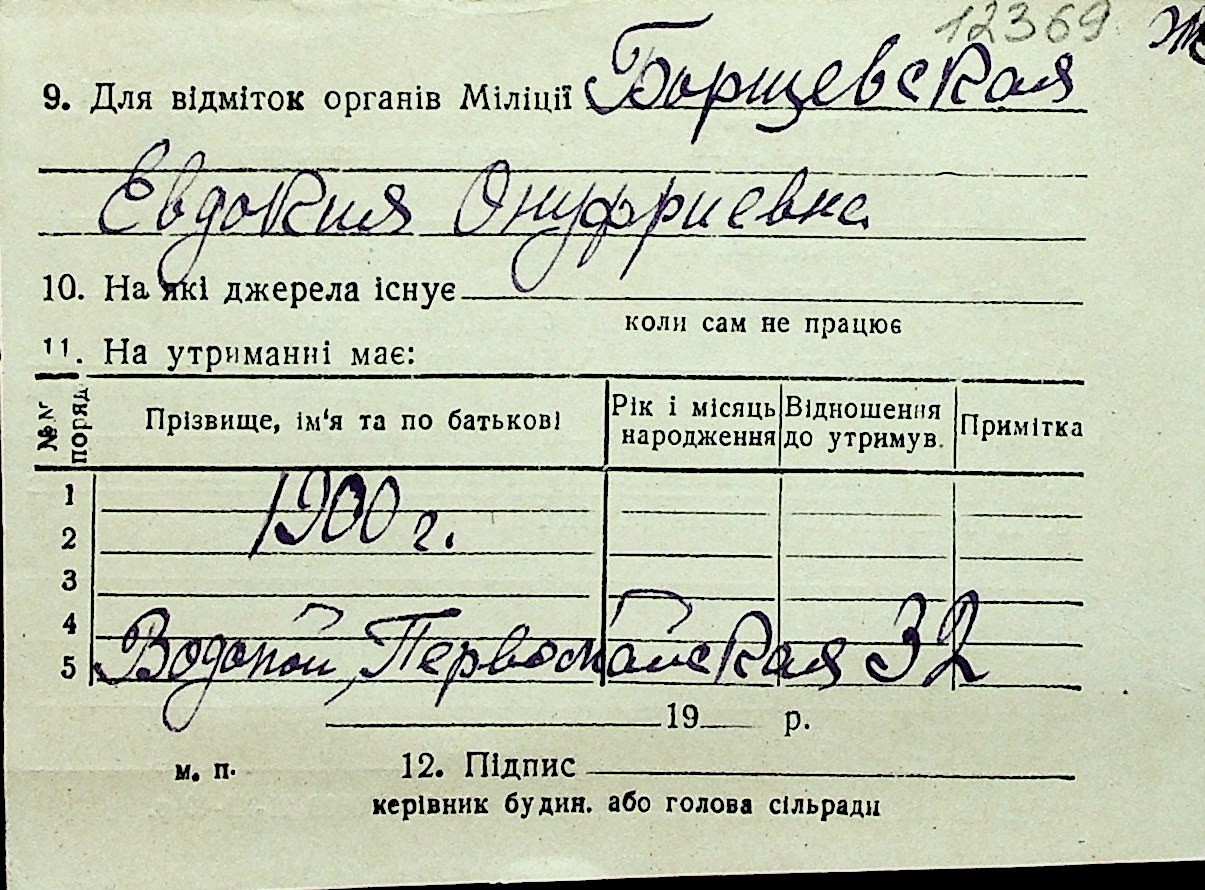 12369 Ж
9. Для відміток органів Міліції Борщевская
Евдокия Онуфриевна
10. На які джерела існує
коли сам не працює
11. На утриманні має:
№№ поряд Прізвище, ім'я та по батькові Рік і місяць народження Відношення до утримув. Примітка
1 1900 г.
2
3
4
5 Водопой, Первомайская 32
19 р.
м. п. 12. Підпис
керівник будин. або голова сільради